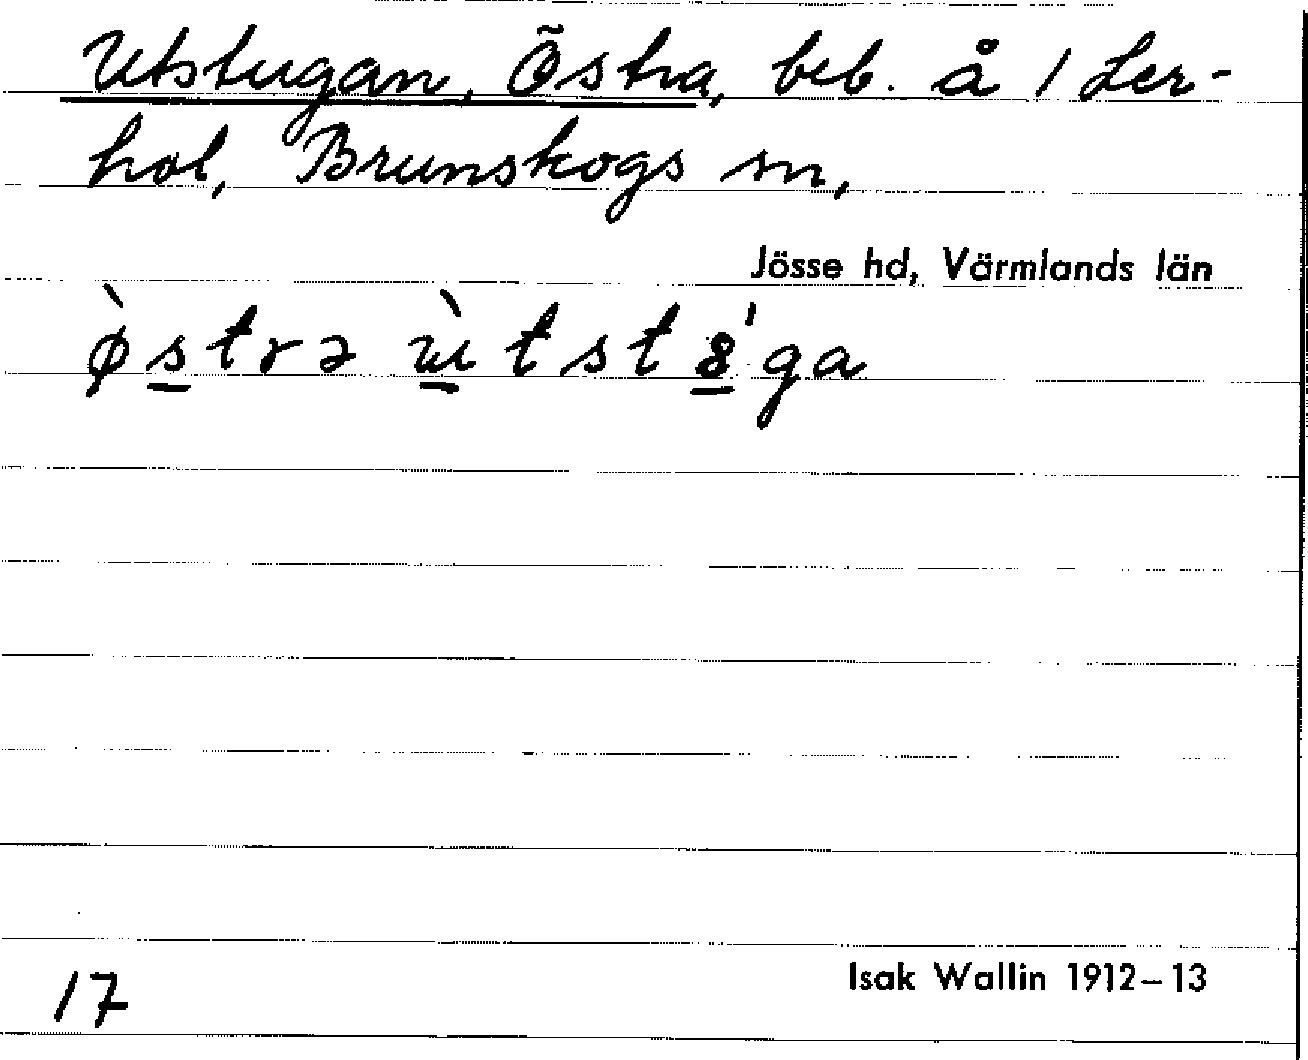 Utstugan, Östra, beb. å 1 Ler-
hol, Brunskogs sn,
Jösse hd, Värmlands län
ø̀s̲trə ù̲tstȣ̲'ga
17
Isak Wallin 1912–13